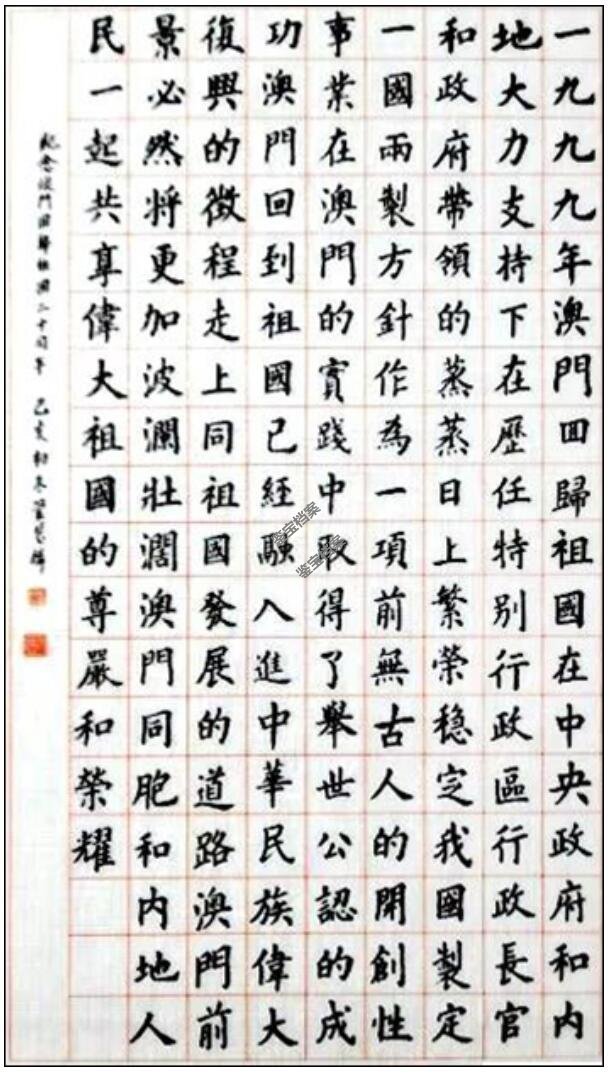 一九九九年澳門回歸祖國在中央政府和内
地大力支持下在歷任特别行政區行政長官
和政府帶領的蒸蒸日上繁榮穩定我國製定
一國兩製方針作為一項前無古人的開創性
事業在澳門的實踐中取得了舉世公認的成
功澳門回到祖國已經融入進中華民族偉大
復興的徵程走上同祖國發展的道路澳門前
景必然將更加波瀾壯濶澳門同胞和内地人
民一起共享偉大祖國的尊嚴和榮耀
紀念澳門回歸祖國二十周年 己亥初冬
鉴宝档案
鉴宝档案